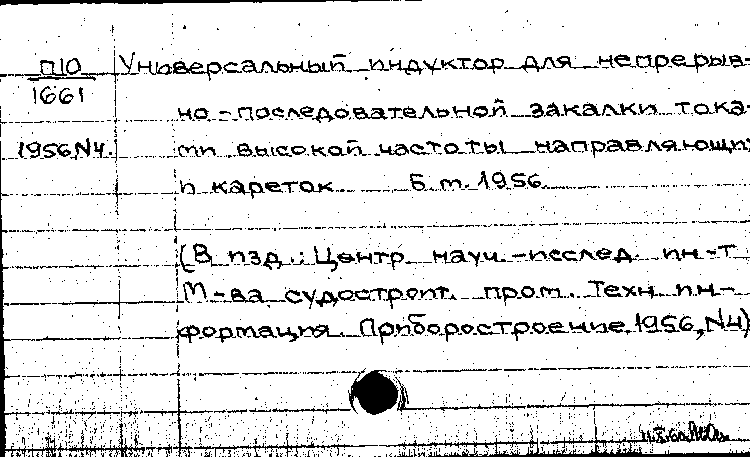 П10 Универсальный индуктор для непрерыв-
1661
но-последовательной закалки тока-
1956,N4. ми высокой частоты направляющих
и кареток. Б.м. 1956
(В изд.: Центр. науч.-исслед. ин-т
М-ва судостроит. пром. Техн. ин-
формация. Приборостроение. 1956, N4)